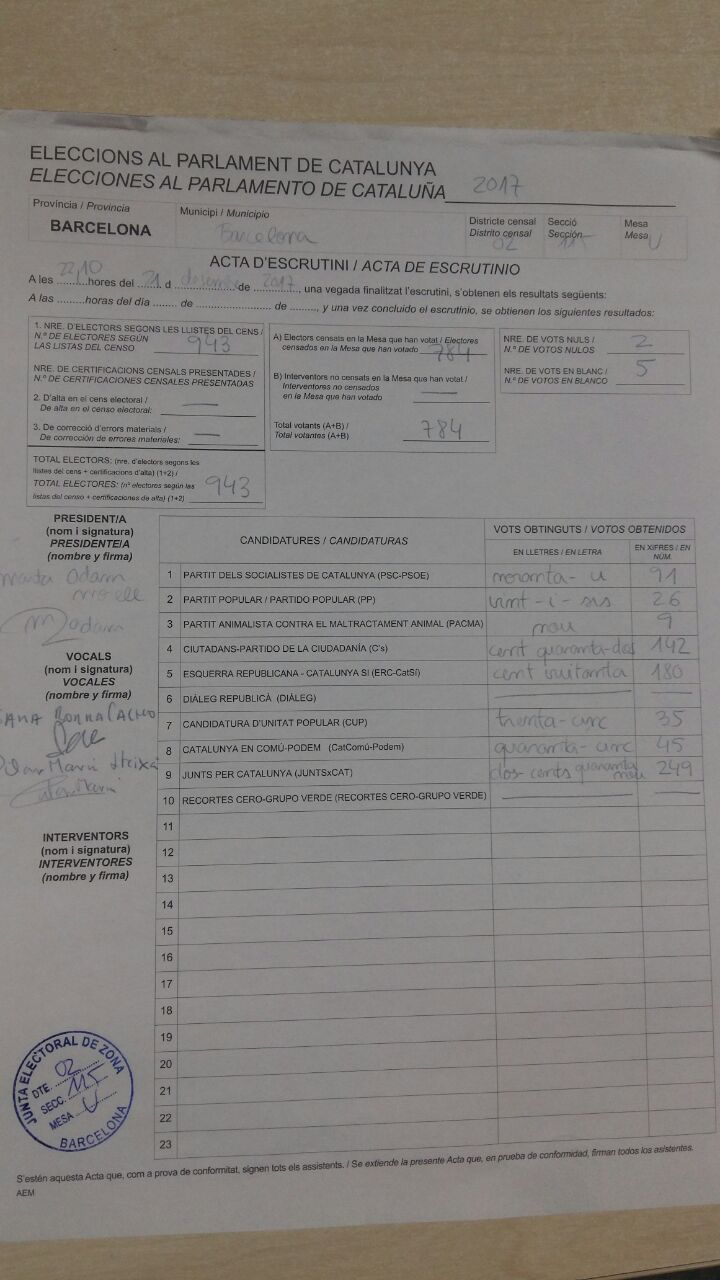 ELECCIONS AL PARLAMENT DE CATALUNYA
ELECCIONES AL PARLAMENTO DE CATALUÑA 2017
Província / Provincia
BARCELONA
Municipi / Municipio
Barcelona
Districte censal
Distrito censal 02
Secció
Sección 115
Mesa
Mesa U
ACTA D'ESCRUTINI / ACTA DE ESCRUTINIO
A les 22,10 hores del 21 d desembre de 2017, una vegada finalitzat l'escrutini, s'obtenen els resultats següents:
A las ......... horas del día ...... de ........................ de ........, y una vez concluido el escrutinio, se obtienen los siguientes resultados:
1. NRE. D'ELECTORS SEGONS LES LLISTES DEL CENS /
N.º DE ELECTORES SEGÚN
LAS LISTAS DEL CENSO 943
NRE. DE CERTIFICACIONS CENSALS PRESENTADES /
N.º DE CERTIFICACIONES CENSALES PRESENTADAS
2. D'alta en el cens electoral / —
De alta en el censo electoral:
3. De correcció d'errors materials / —
De corrección de errores materiales:
TOTAL ELECTORS: (nre. d'electors segons les
llistes del cens + certificacions d'alta) (1+2) /
TOTAL ELECTORES: (nº electores según las
listas del censo + certificaciones de alta) (1+2) 943
A) Electors censats en la Mesa que han votat / Electores
censados en la Mesa que han votado 784
B) Interventors no censats en la Mesa que han votat /
Interventores no censados
en la Mesa que han votado —
Total votants (A+B) /
Total votantes (A+B) 784
NRE. DE VOTS NULS /
N.º DE VOTOS NULOS 2
NRE. DE VOTS EN BLANC /
N.º DE VOTOS EN BLANCO 5
PRESIDENT/A
(nom i signatura)
PRESIDENTE/A
(nombre y firma)
Marta Adam
VOCALS
(nom i signatura)
VOCALES
(nombre y firma)
INTERVENTORS
(nom i signatura)
INTERVENTORES
(nombre y firma)
CANDIDATURES / CANDIDATURAS
VOTS OBTINGUTS / VOTOS OBTENIDOS
EN LLETRES / EN LETRA
EN XIFRES / EN NÚM.
1 PARTIT DELS SOCIALISTES DE CATALUNYA (PSC-PSOE) noranta-u 91
2 PARTIT POPULAR / PARTIDO POPULAR (PP) vint-i-sis 26
3 PARTIT ANIMALISTA CONTRA EL MALTRACTAMENT ANIMAL (PACMA) nou 9
4 CIUTADANS-PARTIDO DE LA CIUDADANÍA (C's) cent quaranta-dos 142
5 ESQUERRA REPUBLICANA - CATALUNYA SI (ERC-CatSí) cent vuitanta 180
6 DIÀLEG REPUBLICÀ (DIÀLEG) — —
7 CANDIDATURA D'UNITAT POPULAR (CUP) trenta-cinc 35
8 CATALUNYA EN COMÚ-PODEM (CatComú-Podem) quaranta-cinc 45
9 JUNTS PER CATALUNYA (JUNTSxCAT) dos-cents quaranta nou 249
10 RECORTES CERO-GRUPO VERDE (RECORTES CERO-GRUPO VERDE) — —
11
12
13
14
15
16
17
18
19
20
21
22
23
JUNTA ELECTORAL DE ZONA
DTE. 02
SECC. 115
MESA U
BARCELONA
S'estén aquesta Acta que, com a prova de conformitat, signen tots els assistents. / Se extiende la presente Acta que, en prueba de conformidad, firman todos los asistentes.
AEM